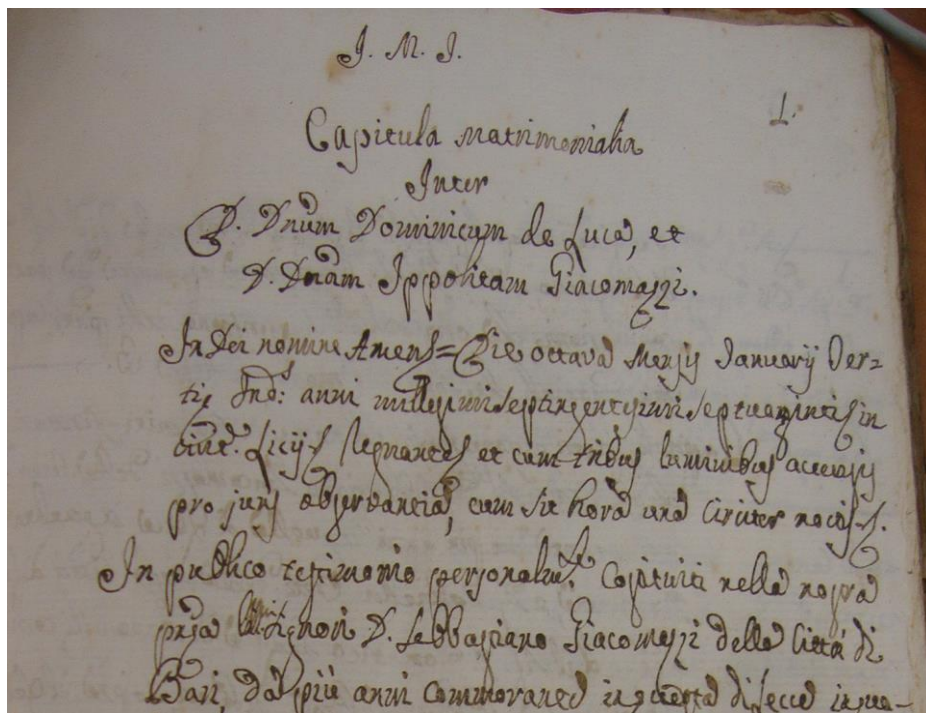 J. M. J.
1.
Capitula Matrimonialia
Inter
D. Dnum Dominicum de Luca, et
D. Dnam Ippolitam Giacomazzi.
In Dei nomine Amen = Die octava Mensis Januarij Ter=
tiæ Ind: anni millesimi septingentesimi septuaginti in
Civit. Licij regnante et cum tribus luminibus accensis
pro juris observantia, cum sit hora una circiter noctis
In publico testimonio personalit. Costituiti nella nostra
pnza li Signori D. Sebbastiano Giacomazzi della Città di
Bari, da più anni commorante in questa di Lecce in que=